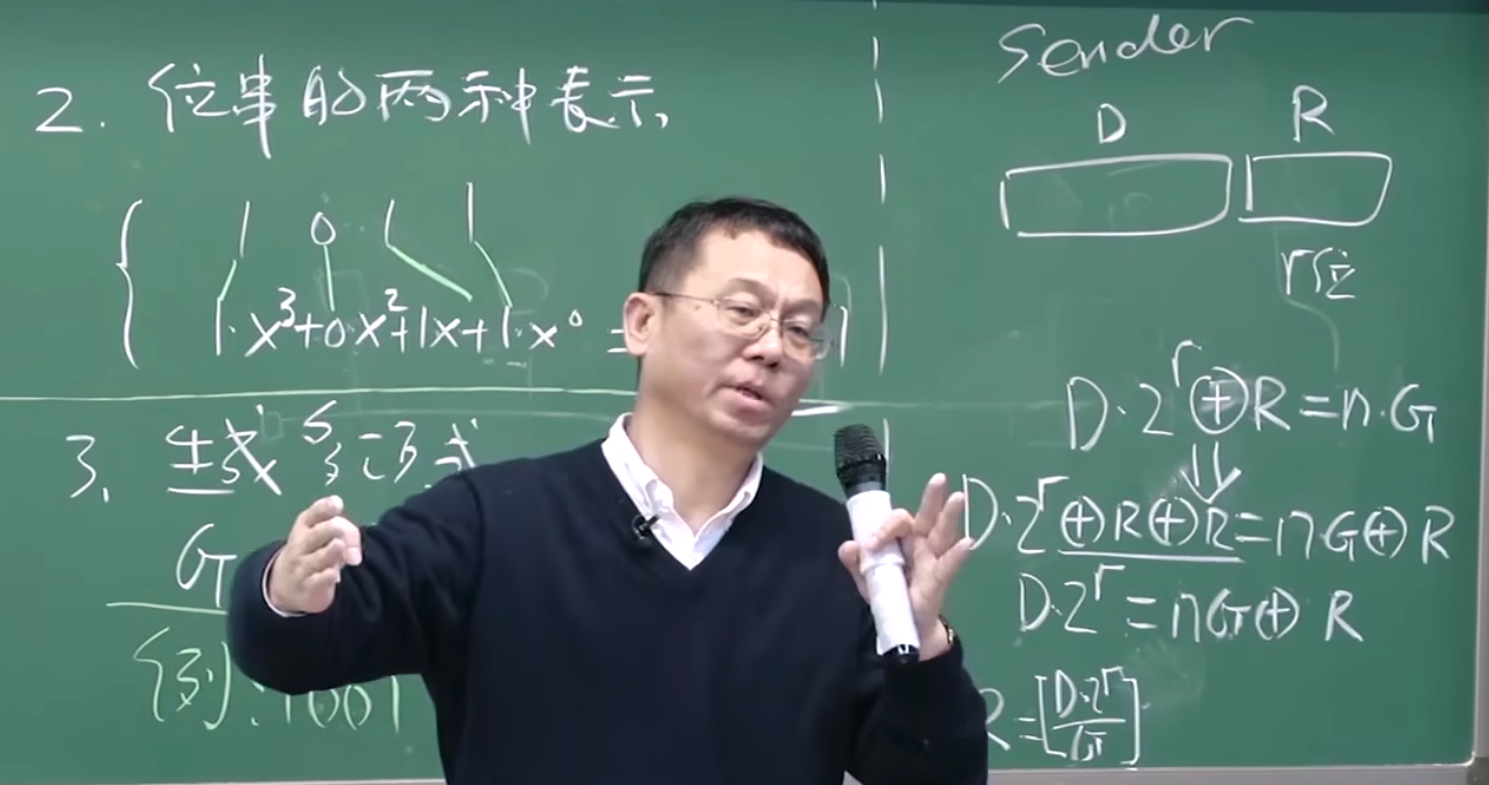 2. 位串的两种表示
1 0 1 1
1·x³+0x²+1x+1·x⁰ =
3. 生成多项式
G
例:1001
Sender
D R
r位
D·2ʳ⊕R=n·G
⇓
D·2ʳ⊕R⊕R=nG⊕R
D·2ʳ=nG⊕R
R=[D·2ʳ/G]